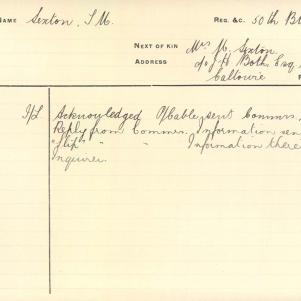 NAME Sexton. S.M. REG. &C. 50th B
NEXT OF KIN Mrs M. Sexton.
ADDRESS c/o J. H. Both, Esq
Caltowie
I/L Acknowledged O/Cable, sent Commrs.
Reply from Commr. Information sen
"slip" " " Information there
Inquirer.